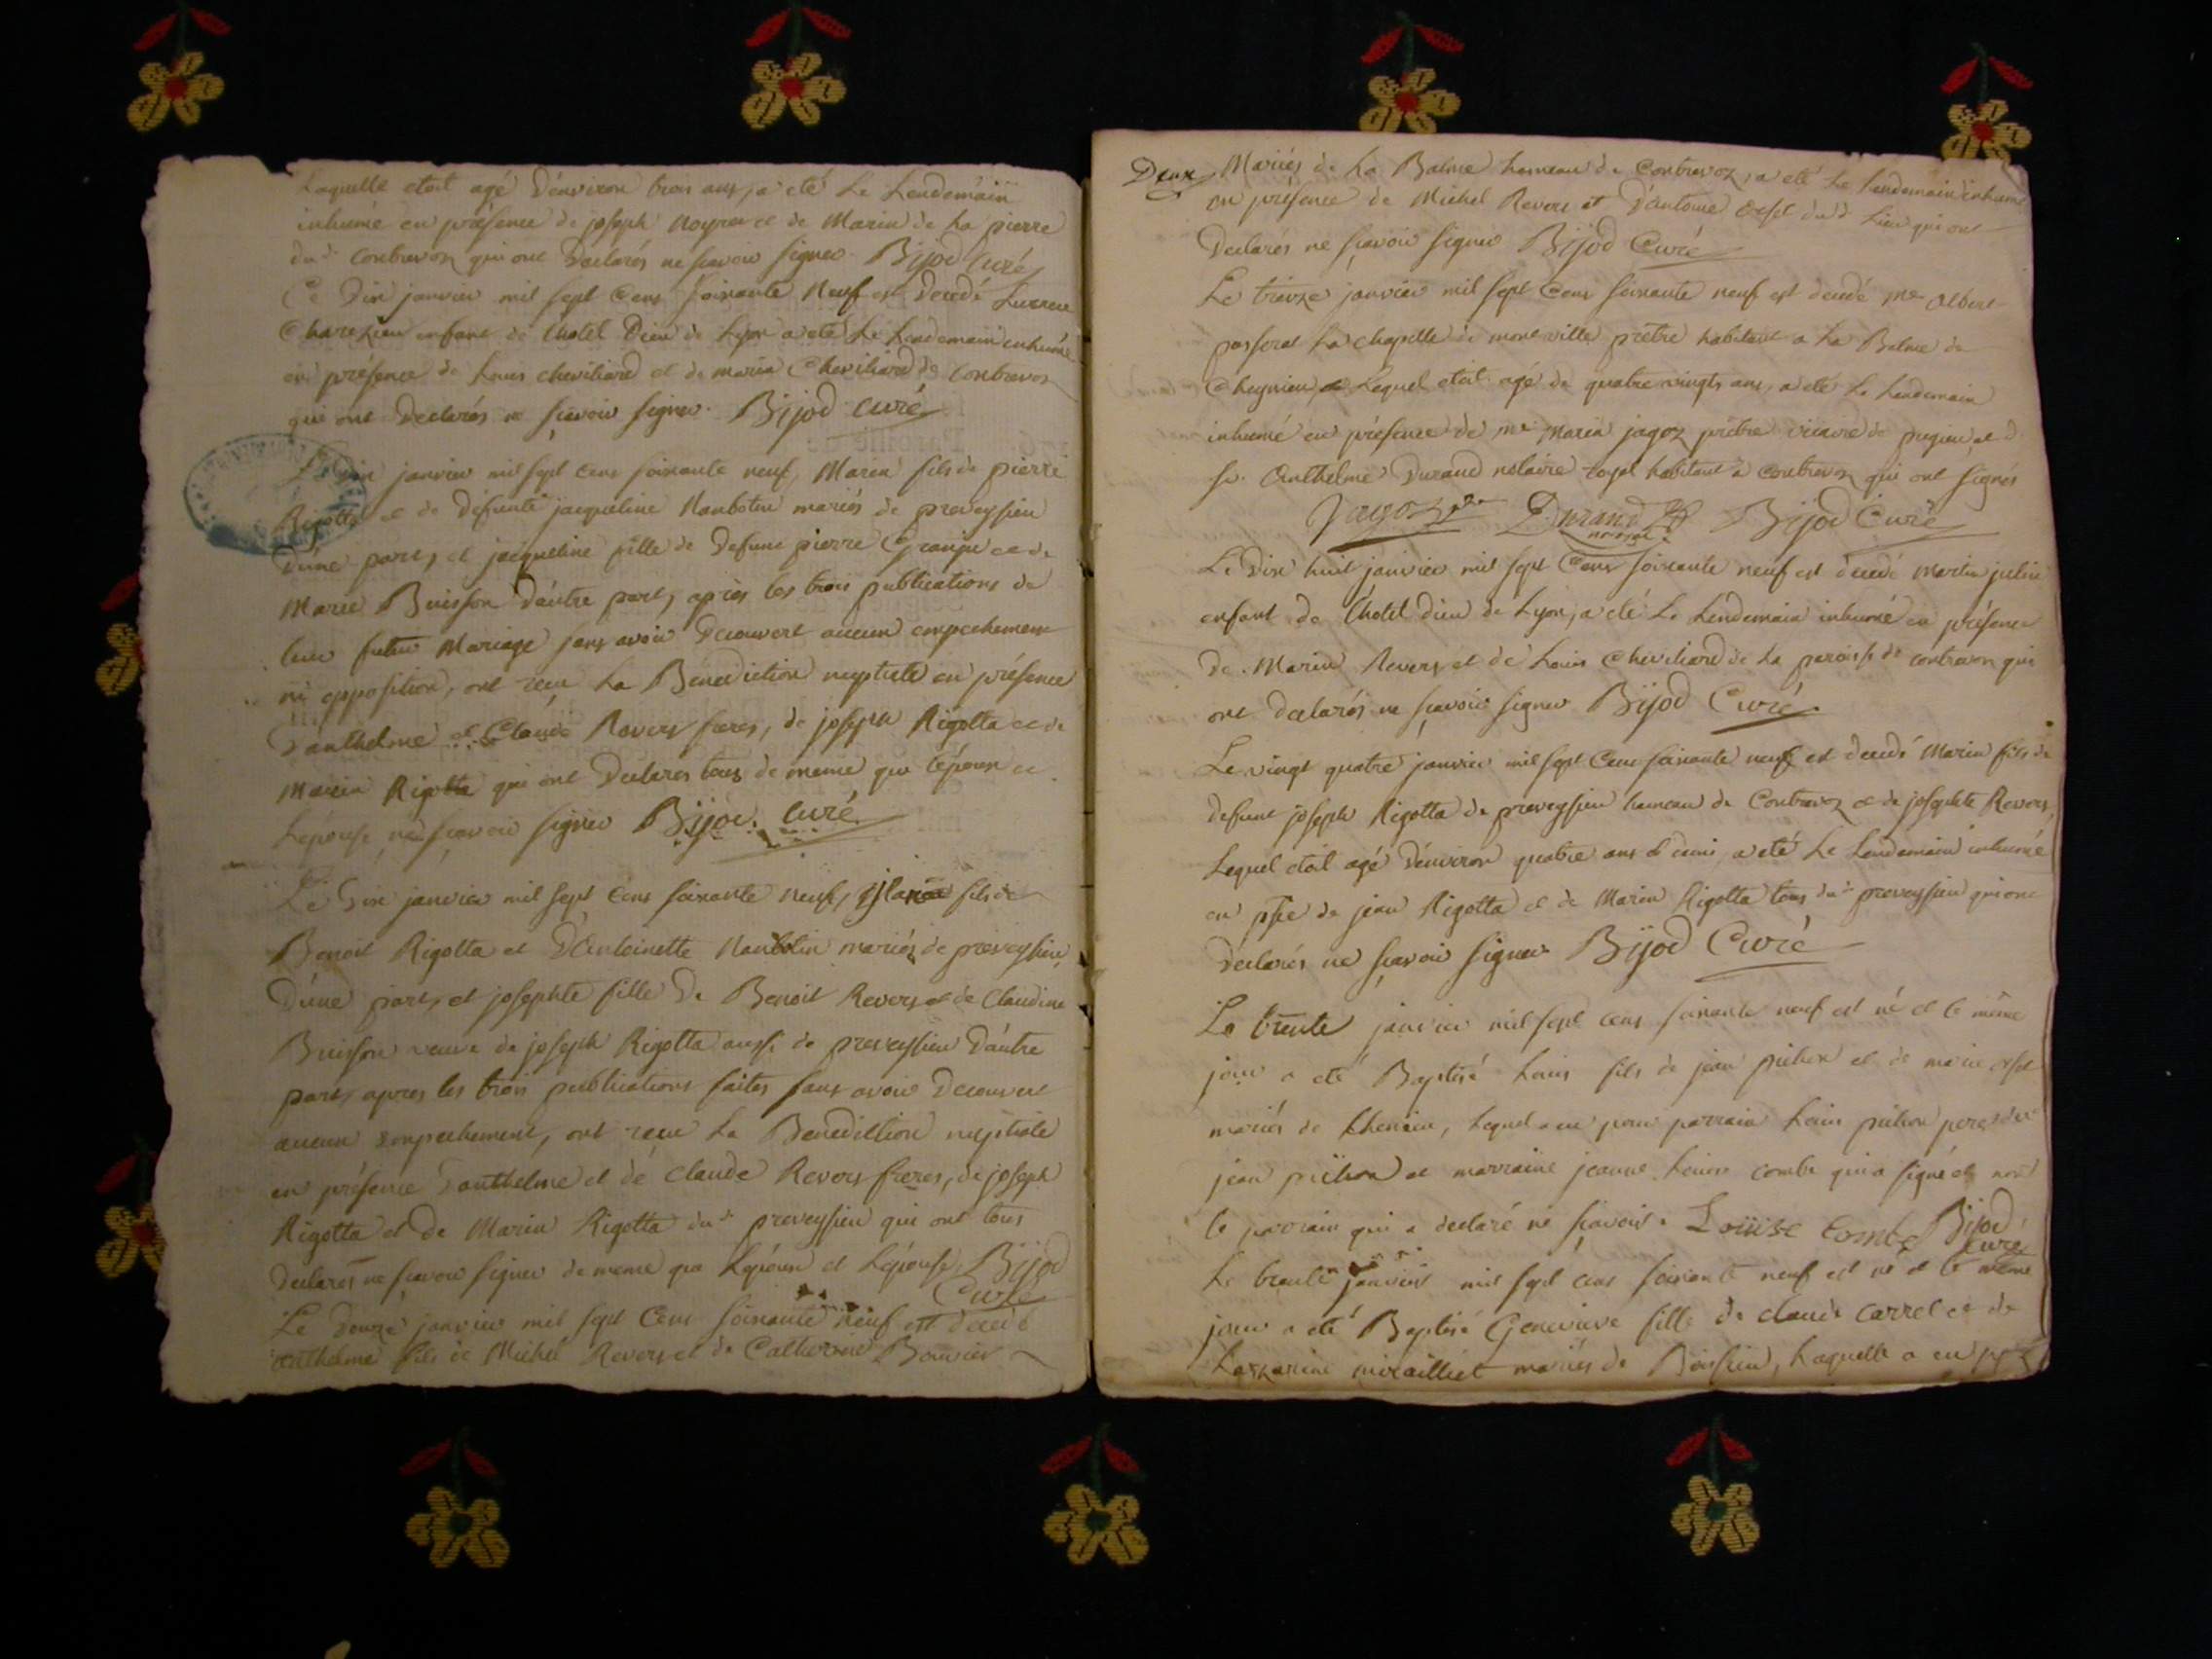 Laquelle etoit agé d'environ trois ans, a eté le lendemain
inhumé en présence de joseph et de Marin de la pierre
dud. contrevoz qui ont declarés ne scavoir signer. Bijod Curé
Le Dix janvier mil sept Cens soixante Neuf est decedé
enfant de l'hotel Dieu de Lyon a eté le lendemain inhumé
en présence de Louis cheviliard et de marin Cheviliard de contrevoz
qui ont declarés ne scavoir signer. Bijod curé
Le Dix janvier mil sept Cens soixante neuf, Marin fils de pierre
Rigotta et de defunte jacqueline mariés de preveyssieu
D'une part, et jacqueline fille de defunt pierre et de
Marie Buisson d'autre part, après les trois publications de
leur futur Mariage sans avoir decouvert aucun empechement
ni opposition, ont recu La Benediction nuptiale en présence
d'anthelme et Claude Revers freres, de joseph Rigotta et de
Marin Rigotta qui ont declares tous de meme que l'époux et
L'épouse ne scavoir signer Bijod. Curé.
Le Dix janvier mil sept Cens soixante neuf, Marin fils de
Benoit Rigotta et D'Antoinette mariés de preveyssieu
D'une part, et josephte fille De Benoit Revers et de Claudine
Buisson veuve de joseph Rigotta aussi de preveyssieu D'autre
part, apres les trois publications faites sans avoir decouvert
aucun empechement, ont recu La Benediction nuptiale
en présence d'anthelme et de Claude Revers freres, de joseph
Rigotta et de Marin Rigotta dud. preveyssieu qui ont tous
declarés ne scavoir signer de meme que L'époux et L'épouse. Bijod
Curé
Le Douze janvier mil sept Cens soixante neuf est decedé
Anthelme fils de Michel Revers et de Catherine Bouvier
Deux
Mariés de La Balme hameau de Contrevoz, a eté Le lendemain inhumé
en présence de Michel Revers et D'antoine orset dud. Lieu qui ont
Declarés ne scavoir signer Bijod Curé
Le treize janvier mil sept Cens soixante neuf est decedé mre Albert
passerat La chapelle de montville prêtre habitant a La Balme de
Lequel etoit agé de quatre vingts ans, a eté Le lendemain
inhumé en présence de mre Marin jagoz prêtre vicaire de pugieu, et d
sr. Anthelme Durand notaire royal habitant à Contrevoz qui ont signés
Jagoz ptre Durand Bijod Curé
Le Dix huit janvier mil sept Cens soixante neuf est decedé Martin
enfant de l'hotel dieu de Lyon, a eté Le lendemain inhumé en présence
de Marin Revers et de Louis Cheviliard de La paroisse de contrevoz qui
ont declarés ne scavoir signer Bijod Curé.
Le vingt quatre janvier mil sept Cens soixante neuf est decedé Marin fils de
defunt joseph Rigotta de preveyssieu hameau de Contrevoz et de josephte Revers,
Lequel etoit agé d'environ quatre ans et demi, a eté Le lendemain inhumé
en pnce de jean Rigotta et de Marin Rigotta tous dud. preveyssieu qui ont
declarés ne scavoir signer Bijod Curé
Le trente janvier mil sept cens soixante neuf est né et le même
jour a eté Baptisé Louis fils de jean pichon et de marie orset
mariés de Lequel a eu pour parrain Louis pichon pere de
jean pichon et marraine jeanne Louise combe qui a signé et non
le parrain qui a declaré ne scavoir. Loüise combe Bijod
Curé
Le trente janvier mil sept cens soixante neuf est né et le même
jour a eté Baptisé Genevieve fille de claude carrel et de
mariés de Boissieu, Laquelle a eu